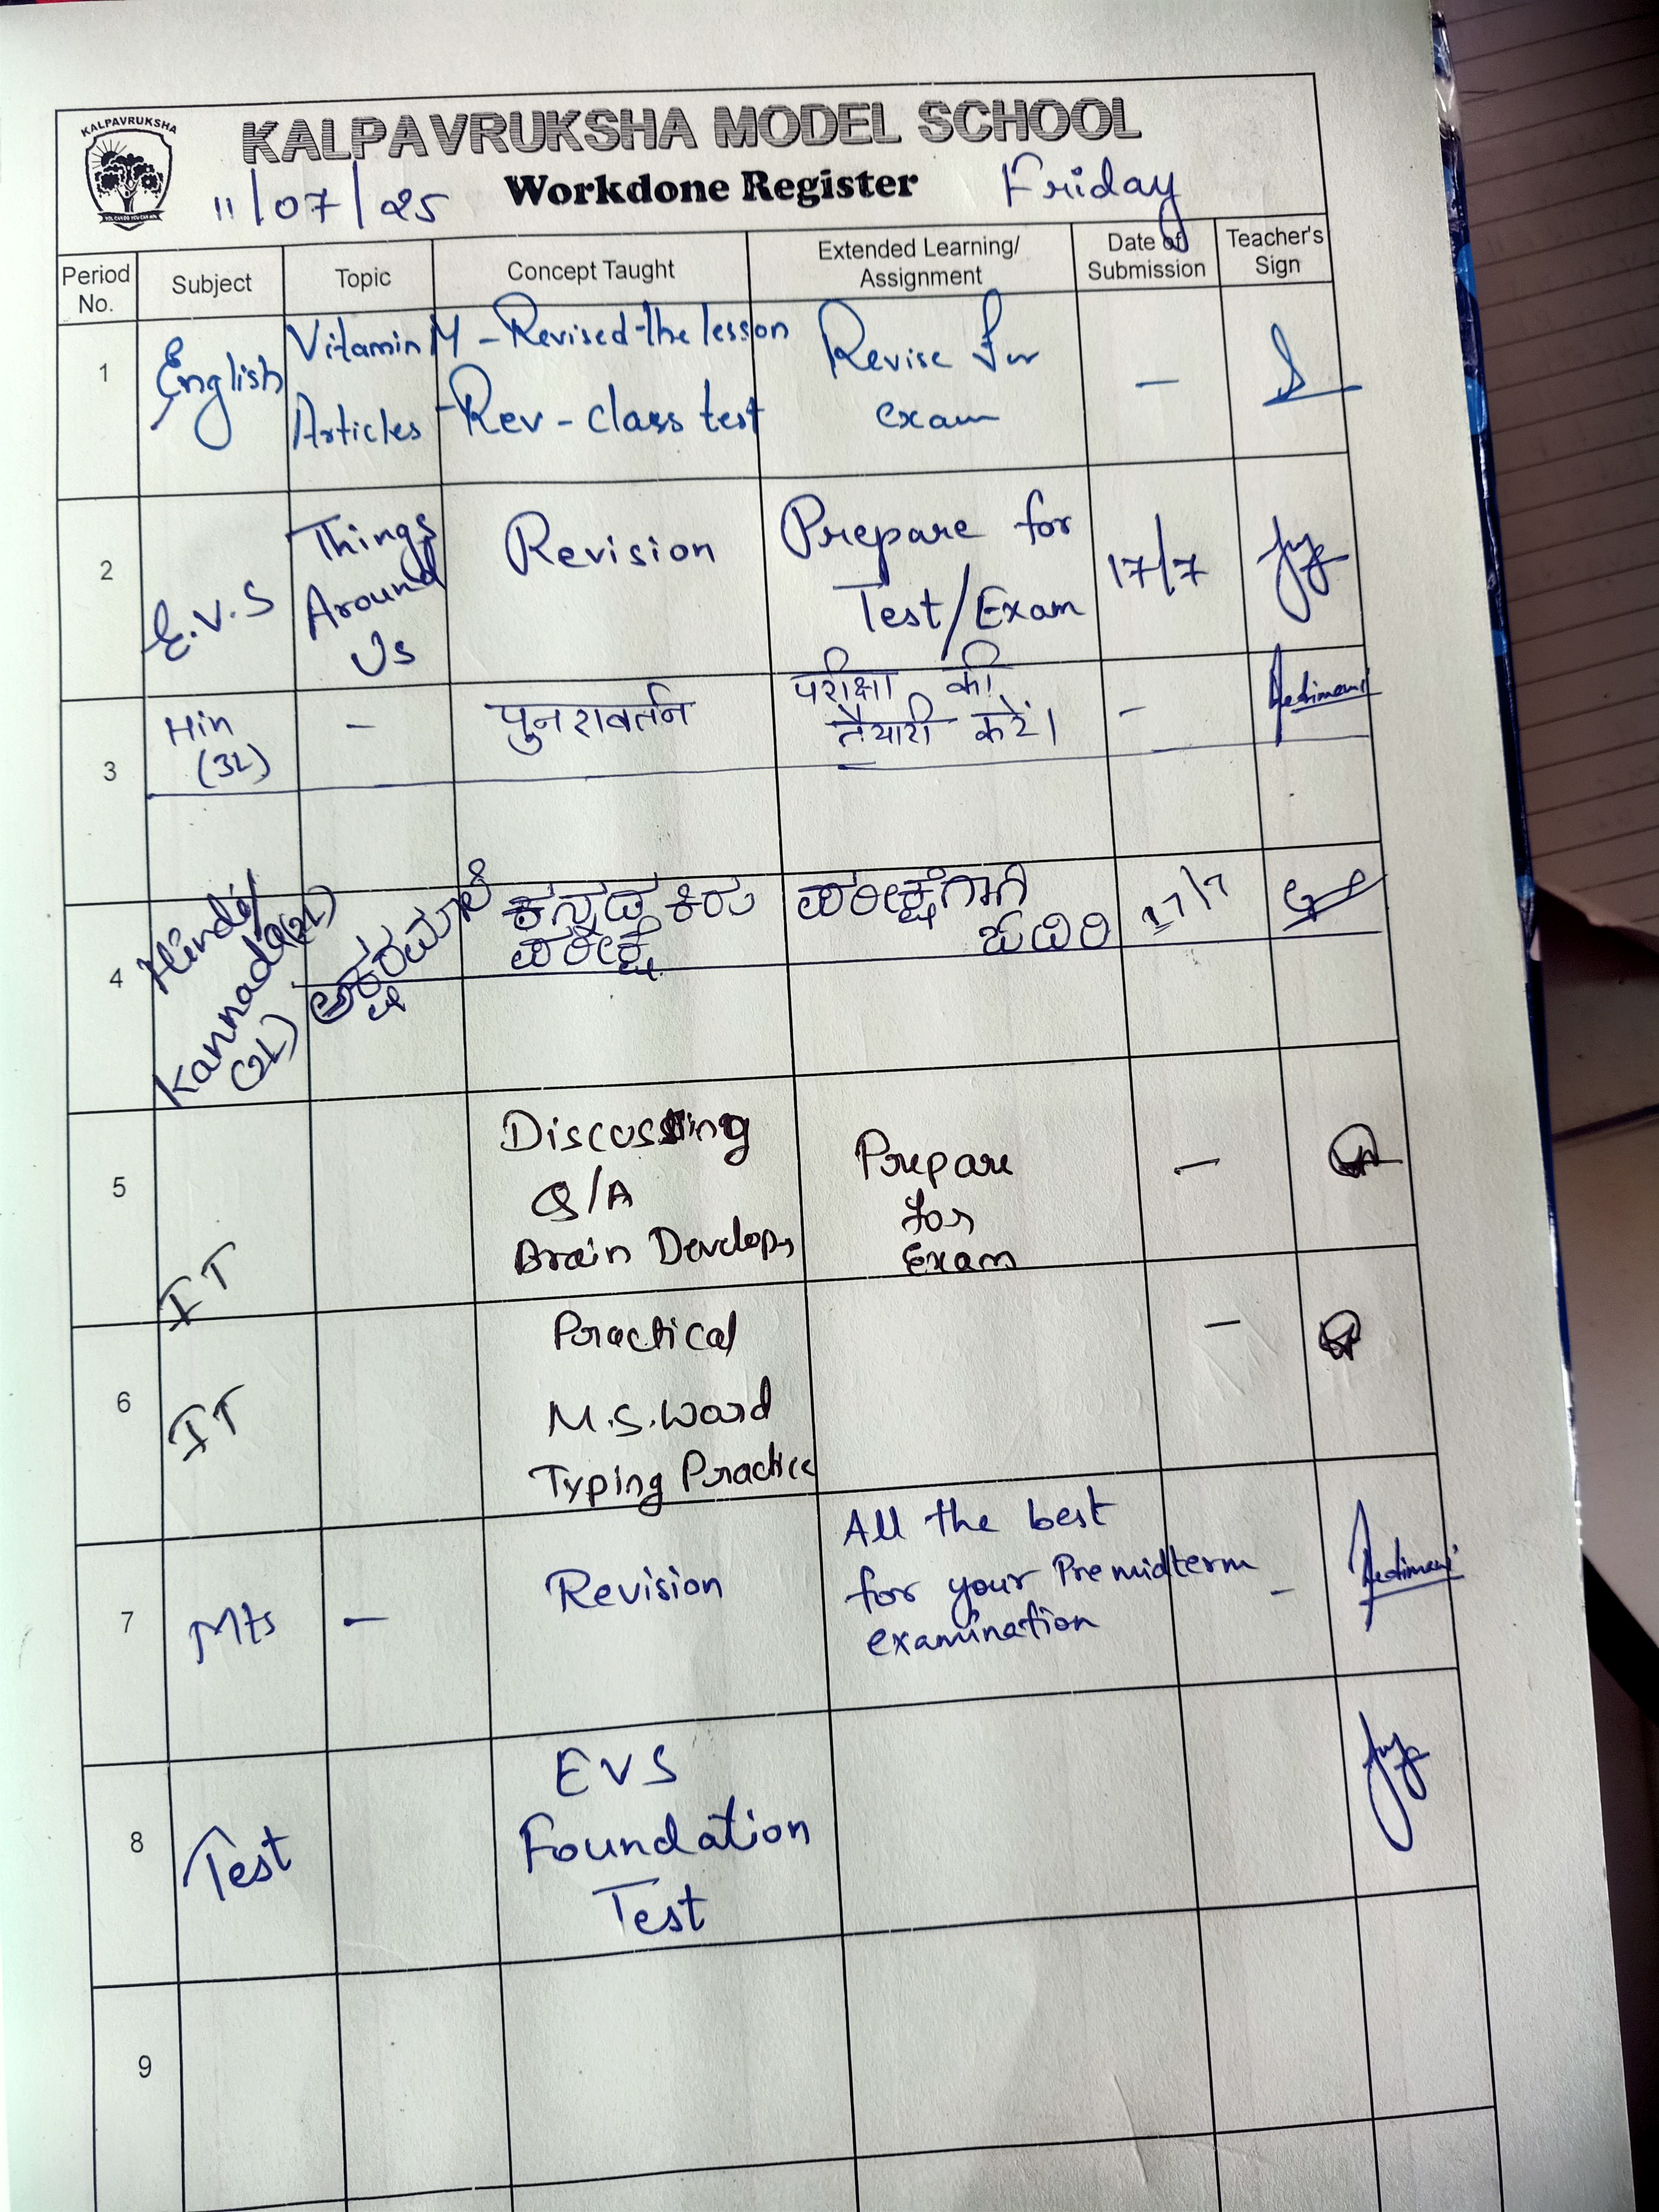 KALPAVRUKSHA
KALPAVRUKSHA MODEL SCHOOL
11/07/25 Workdone Register Friday
Period No. Subject Topic Concept Taught Extended Learning/ Assignment Date of Submission Teacher's Sign
1 English Vitamin M - Revised the lesson Revise for exam -
Articles - Rev - class test
2 E.V.S Things Around Us Revision Prepare for Test/Exam 17/7
3 Hin (3L) - पुनरावर्तन परीक्षा की तैयारी करें। -
4 Hindi/ (2L) Kannada (2L) ಅಕ್ಷರಮಾಲೆ ಕನ್ನಡ ಕಿರು ಪರೀಕ್ಷೆ ಪರೀಕ್ಷೆಗಾಗಿ ಓದಿರಿ 17/7
5 IT Discussing Q/A Brain Develop Prepare for Exam -
6 IT Practical M.S.Word Typing Practice -
7 Mts - Revision All the best for your Premidterm examination -
8 Test EVS Foundation Test
9